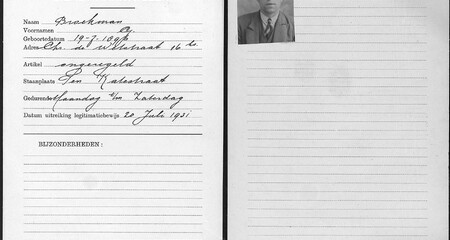 Naam Broekman
Voornamen
Geboortedatum 19-7-
Adres Chr. de Wetstraat 16 hs.
Artikel ongeregeld
Staanplaats Ten Katestraat
Gedurende Maandag t/m Zaterdag
Datum uitreiking legitimatiebewijs 20 Juli 1931
BIJZONDERHEDEN: